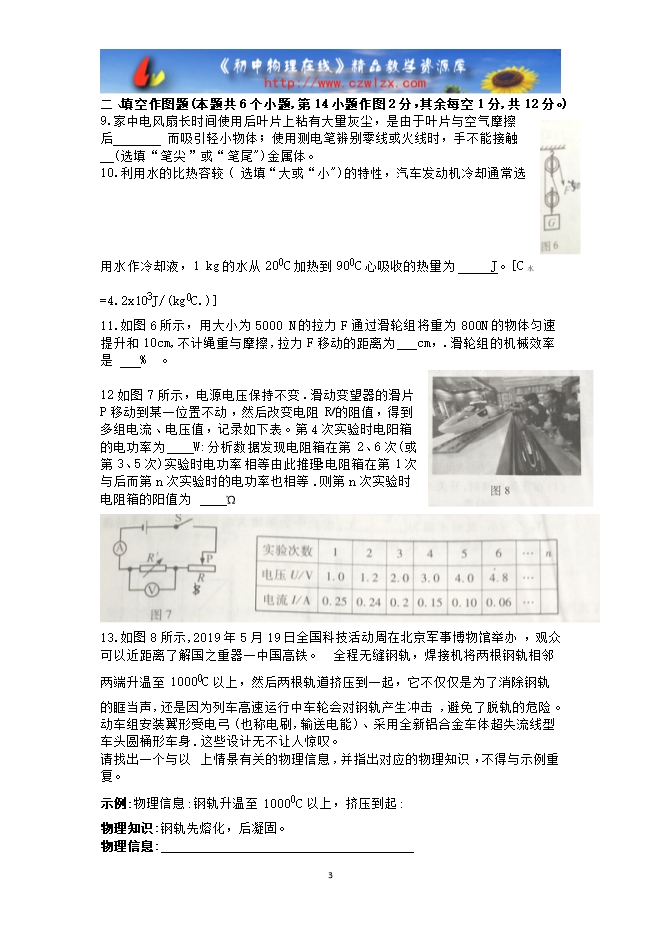 《初中物理在线》精品教学资源库
http://www.czwlzx.com
二、填空作图题(本题共6个小题,第14小题作图2分,其余每空1分,共12分。)
9.家中电风扇长时间使用后叶片上粘有大量灰尘,是由于叶片与空气摩擦
后_______ 而吸引轻小物体;使用测电笔辨别零线或火线时,手不能接触
__(选填“笔尖”或“笔尾")金属体。
10.利用水的比热容较( 选填“大或“小")的特性,汽车发动机冷却通常选
F
G
图6
用水作冷却液,1 kg的水从20⁰C加热到90⁰C心吸收的热量为_____J。[C水
=4.2x10³J/(kg⁰C.)]
11.如图6所示,用大小为5000 N的拉力F通过滑轮组将重为800N的物体匀速
提升和10cm,不计绳重与摩擦,拉力F移动的距离为___cm,.滑轮组的机械效率
是 ___% 。
12如图7所示,电源电压保持不变.滑动变望器的滑片
P移动到某一位置不动,然后改变电阻 R/的阻值,得到
多组电流、电压值,记录如下表。第4次实验时电阳箱
的电功率为____W:分析数据发现电阻箱在第 2、6次(或
第3、5次)实验时电功率相等由此推理:电阻箱在第1次
与后而第n次实验时的电功率也相等.则第n次实验时
电阻箱的阳值为 ____Ω
图8
S
A
R'
P
V
R
图7
实验次数 1 2 3 4 5 6 … n
电压U/V 1.0 1.2 2.0 3.0 4.0 4.8 …
电流I/A 0.25 0.24 0.2 0.15 0.10 0.06 …
13.如图8所示,2019年5月19日全国科技活动周在北京军事博物馆举办 ,观众
可以近距离了解国之重器一中国高铁。 全程无缝钢轨,焊接机将两根钢轨相邻
两端升温至1000⁰C以上,然后两根轨道挤压到一起,它不仅仅是为了消除钢轨
的眶当声,还是因为列车高速运行中车轮会对钢轨产生冲击 ,避免了脱轨的危险。
动车组安装翼形受电弓(也称电刷,输送电能)、采用全新铝合金车体超失流线型
车头圆桶形车身.这些设计无不让人惊叹。
请找出一个与以 上情景有关的物理信息,并指出对应的物理知识,不得与示例重
复。
示例:物理信息:钢轨升温至1000⁰C以上,挤压到起:
物理知识:钢轨先熔化,后凝固。
物理信息:____________________________________
3